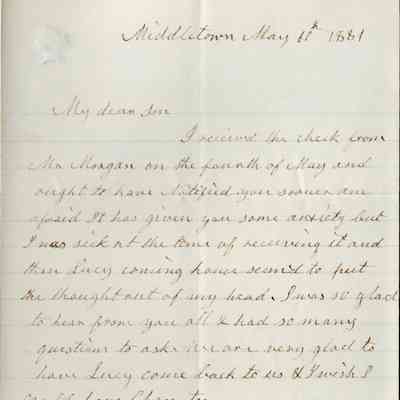 Middletown May 11th 1881
My dear Son
I received the check from
Mr Morgan on the fourth of May and
ought to have Notified you sooner am
afraid It has given you some anxiety but
I was sick at the time of receiving it and
then Lucy coming home seemd to put
the thought out of my head. I was so glad
to hear from you all & had so many
questions to ask we are very glad to
have Lucy come back to us & I wish I
could have